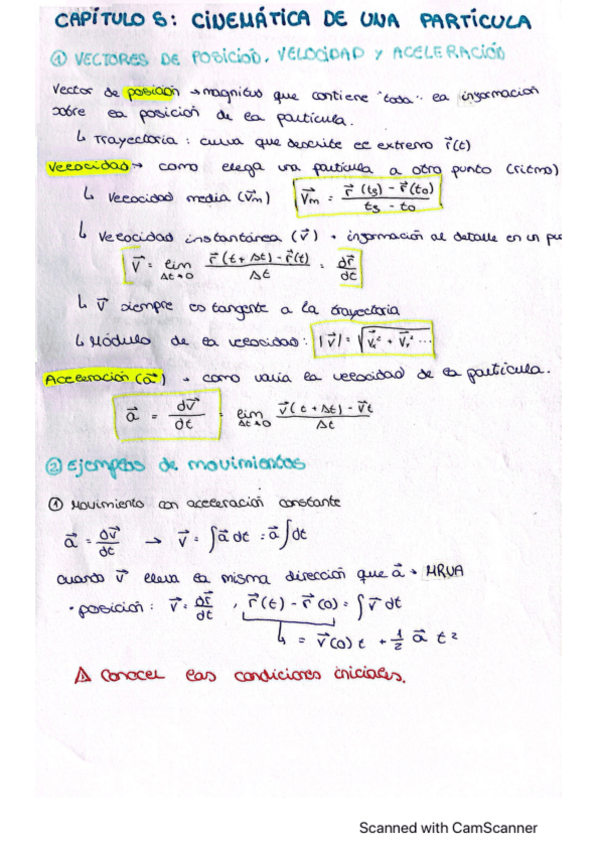 CAPÍTULO 8: CINEMÁTICA DE UNA PARTÍCULA
① VECTORES DE POSICIÓN, VELOCIDAD Y ACELERACIÓN
Vector de posición → magnitud que contiene "toda" la información
sobre la posición de la partícula.
↳ Trayectoria : curva que describe el extremo r⃗(t)
Velocidad → como llega una partícula a otro punto (ritmo)
↳ Velocidad media (v⃗m) v⃗m = (r⃗(ts) - r⃗(to)) / (ts - to)
↳ Velocidad instantánea (v⃗) → información al detalle en un pu
v⃗ = lim Δt→0 (r⃗(t+Δt) - r⃗(t)) / Δt = dr⃗/dt
↳ v⃗ siempre es tangente a la trayectoria
↳ Módulo de la velocidad: |v⃗| = √
Aceleración (a⃗) → como varía la velocidad de la partícula.
a⃗ = dv⃗/dt = lim Δt→0 (v⃗(t+Δt) - v⃗t) / Δt
② Ejemplos de movimientos
① Movimiento con aceleración constante
a⃗ = dv⃗/dt → v⃗ = ∫a⃗ dt = a⃗ ∫dt
cuando v⃗ lleva la misma dirección que a⃗ → MRUA
• posición : v⃗ = dr⃗/dt , r⃗(t) - r⃗(0) = ∫v⃗ dt
↳ = v⃗(0) t + 1/2 a⃗ t²
⚠ Conocer las condiciones iniciales.
Scanned with CamScanner